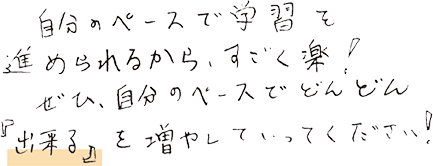 自分のペースで学習を
進められるから、すごく楽!
ぜひ、自分のペースでどんどん
『出来る』を増やしていってください!